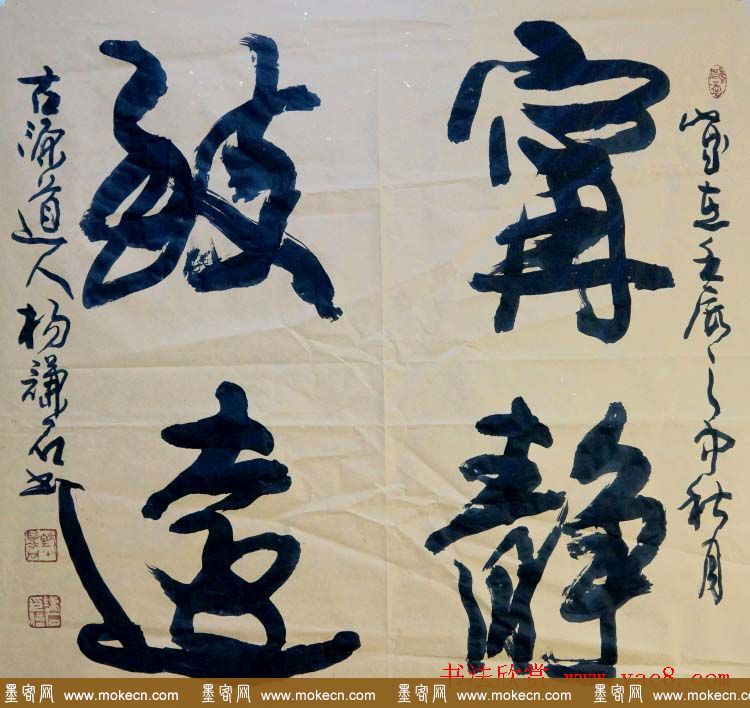 歲在壬辰之中秋月
寧靜
致遠
古源道人杨謙石书
书法欣赏 www.yac8.com
墨客网 www.mokecn.com 墨客网 www.mokecn.com 墨客网 www.mokecn.com 墨客网 www.mokecn.com